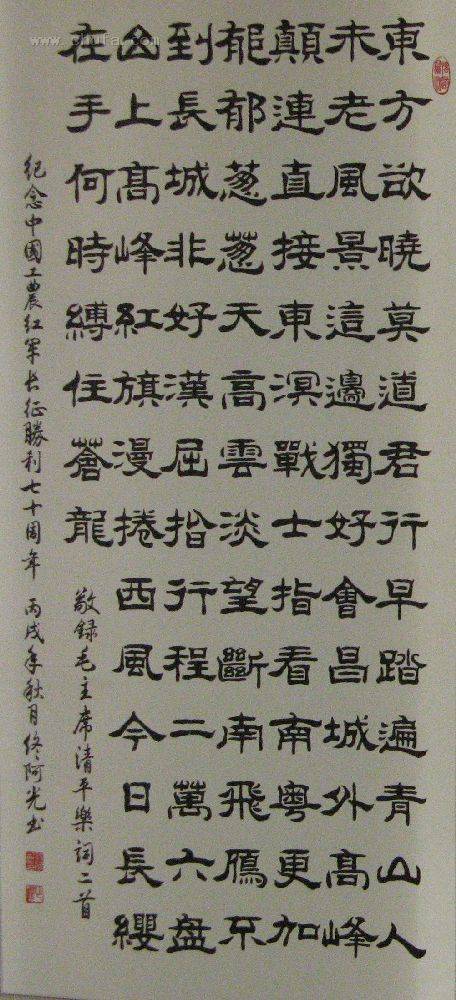 東方欲曉莫道君行早踏遍青山人
未老風景這邊獨好會昌城外髙峰
顛連直接東溟戰士指看南粵更加
郁郁葱葱天高雲淡望斷南飛鴈不
到長城非好漢屈指行程二萬六盤
山上髙峰紅旗漫捲西風今日長纓
在手何時縛住蒼龍
敬録毛主席清平樂詞二首
紀念中國工農紅軍长征勝利七十周年 丙戌年秋月佟阿光书